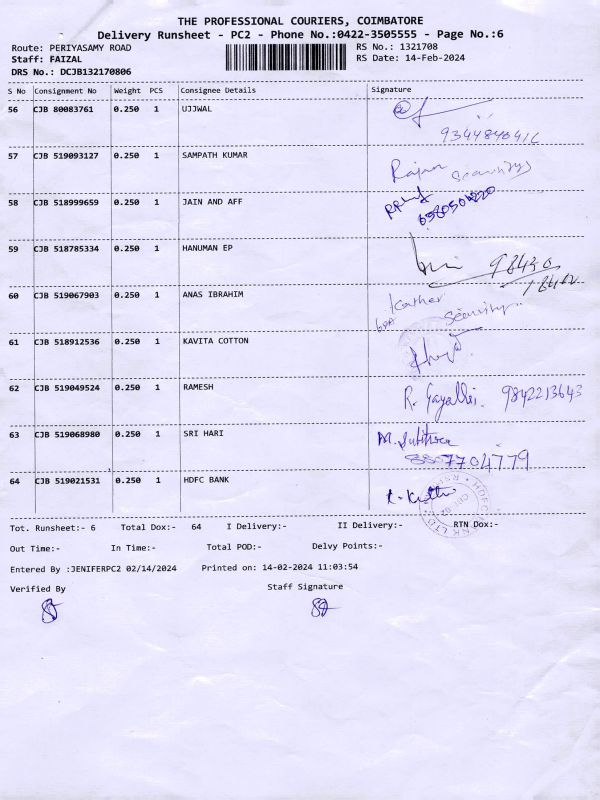 THE PROFESSIONAL COURIERS, COIMBATORE
Delivery Runsheet - PC2 - Phone No.:0422-3505555 - Page No.:6
Route: PERIYASAMY ROAD RS No.: 1321708
Staff: FAIZAL RS Date: 14-Feb-2024
DRS No.: DCJB132170806
S No Consignment No Weight PCS Consignee Details Signature
56 CJB 80083761 0.250 1 UJJWAL
57 CJB 519093127 0.250 1 SAMPATH KUMAR
Rajan Security
58 CJB 518999659 0.250 1 JAIN AND AFF
59 CJB 518785334 0.250 1 HANUMAN EP
98430
60 CJB 519067903 0.250 1 ANAS IBRAHIM
Kather Security
61 CJB 518912536 0.250 1 KAVITA COTTON
62 CJB 519049524 0.250 1 RAMESH
R. 9842213643
63 CJB 519068980 0.250 1 SRI HARI
M.
7704779
64 CJB 519021531 0.250 1 HDFC BANK
HDFC
Tot. Runsheet:- 6 Total Dox:- 64 I Delivery:- II Delivery:- RTN Dox:-
Out Time:- In Time:- Total POD:- Delvy Points:-
Entered By :JENIFERPC2 02/14/2024 Printed on: 14-02-2024 11:03:54
Verified By Staff Signature